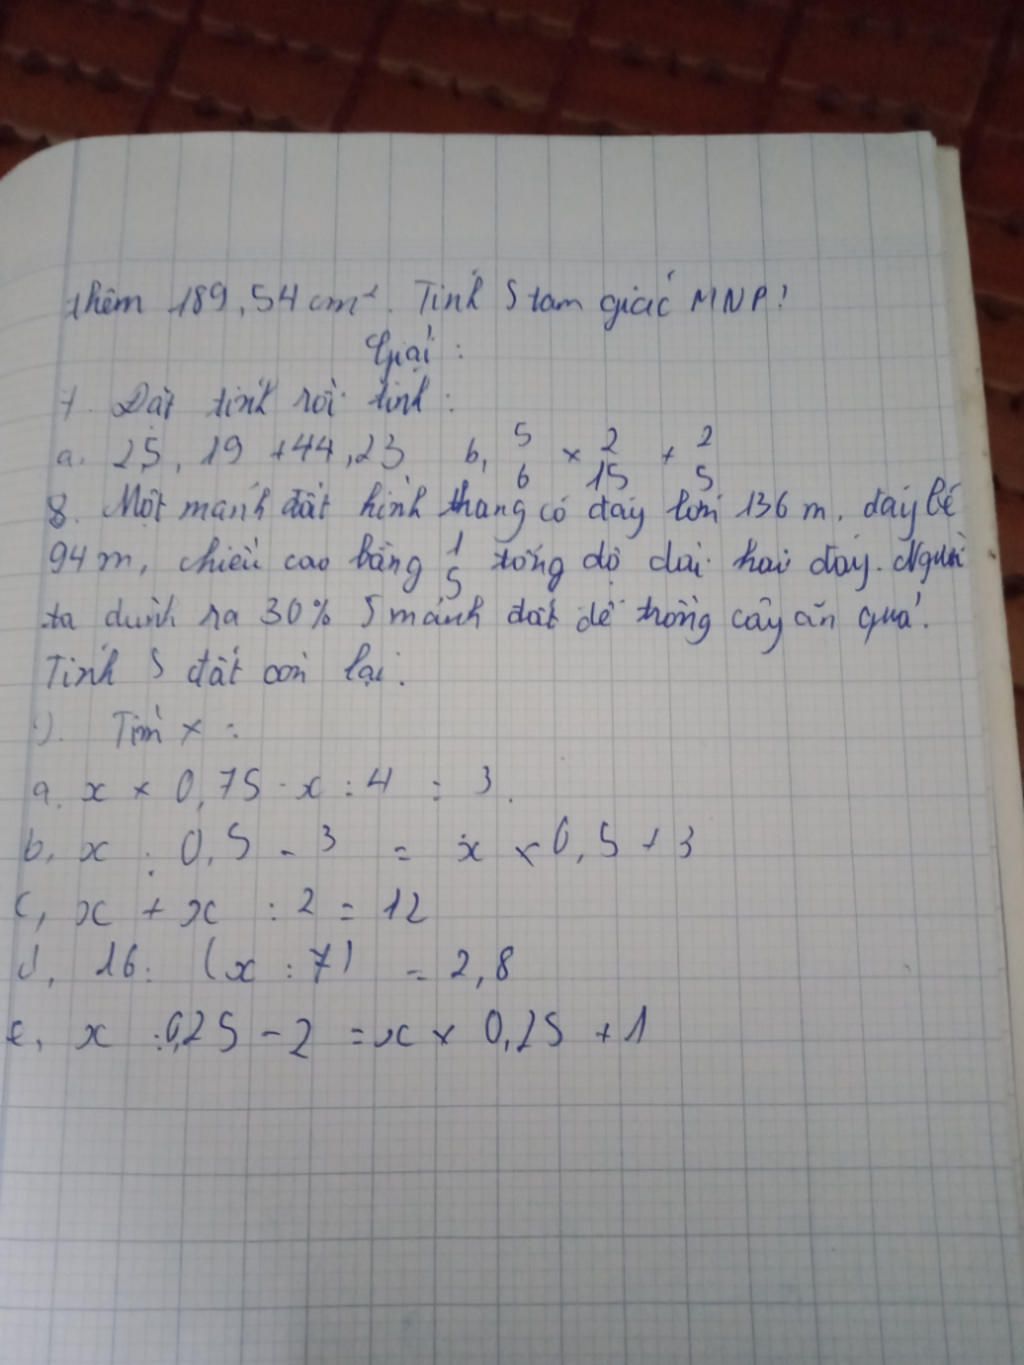 thêm 189,54 cm². Tính S tam giác MNP?
Giải :
7. Đặt tính rồi tính :
a. 25,19 + 44,23 b, 5/6 × 2/15 + 2/5
8. Một mảnh đất hình thang có đáy lớn 136 m, đáy bé
94 m, chiều cao bằng 1/5 tổng độ dài hai đáy. Người
ta dành ra 30% S mảnh đất để trồng cây ăn quả.
Tính S đất còn lại.
9. Tìm x :
a. x × 0,75 - x : 4 = 3.
b, x : 0,5 - 3 = x × 0,5 + 3
c, x + x : 2 = 12
d, 16 : (x : 7) = 2,8
e, x : 0,25 - 2 = x × 0,25 + 1